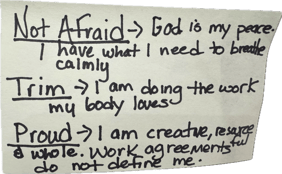 Not Afraid → God is my peace.
I have what I need to breathe
calmly
Trim → I am doing the work
my body loves
Proud → I am creative, resourceful
& whole. Work agreements
do not define me.